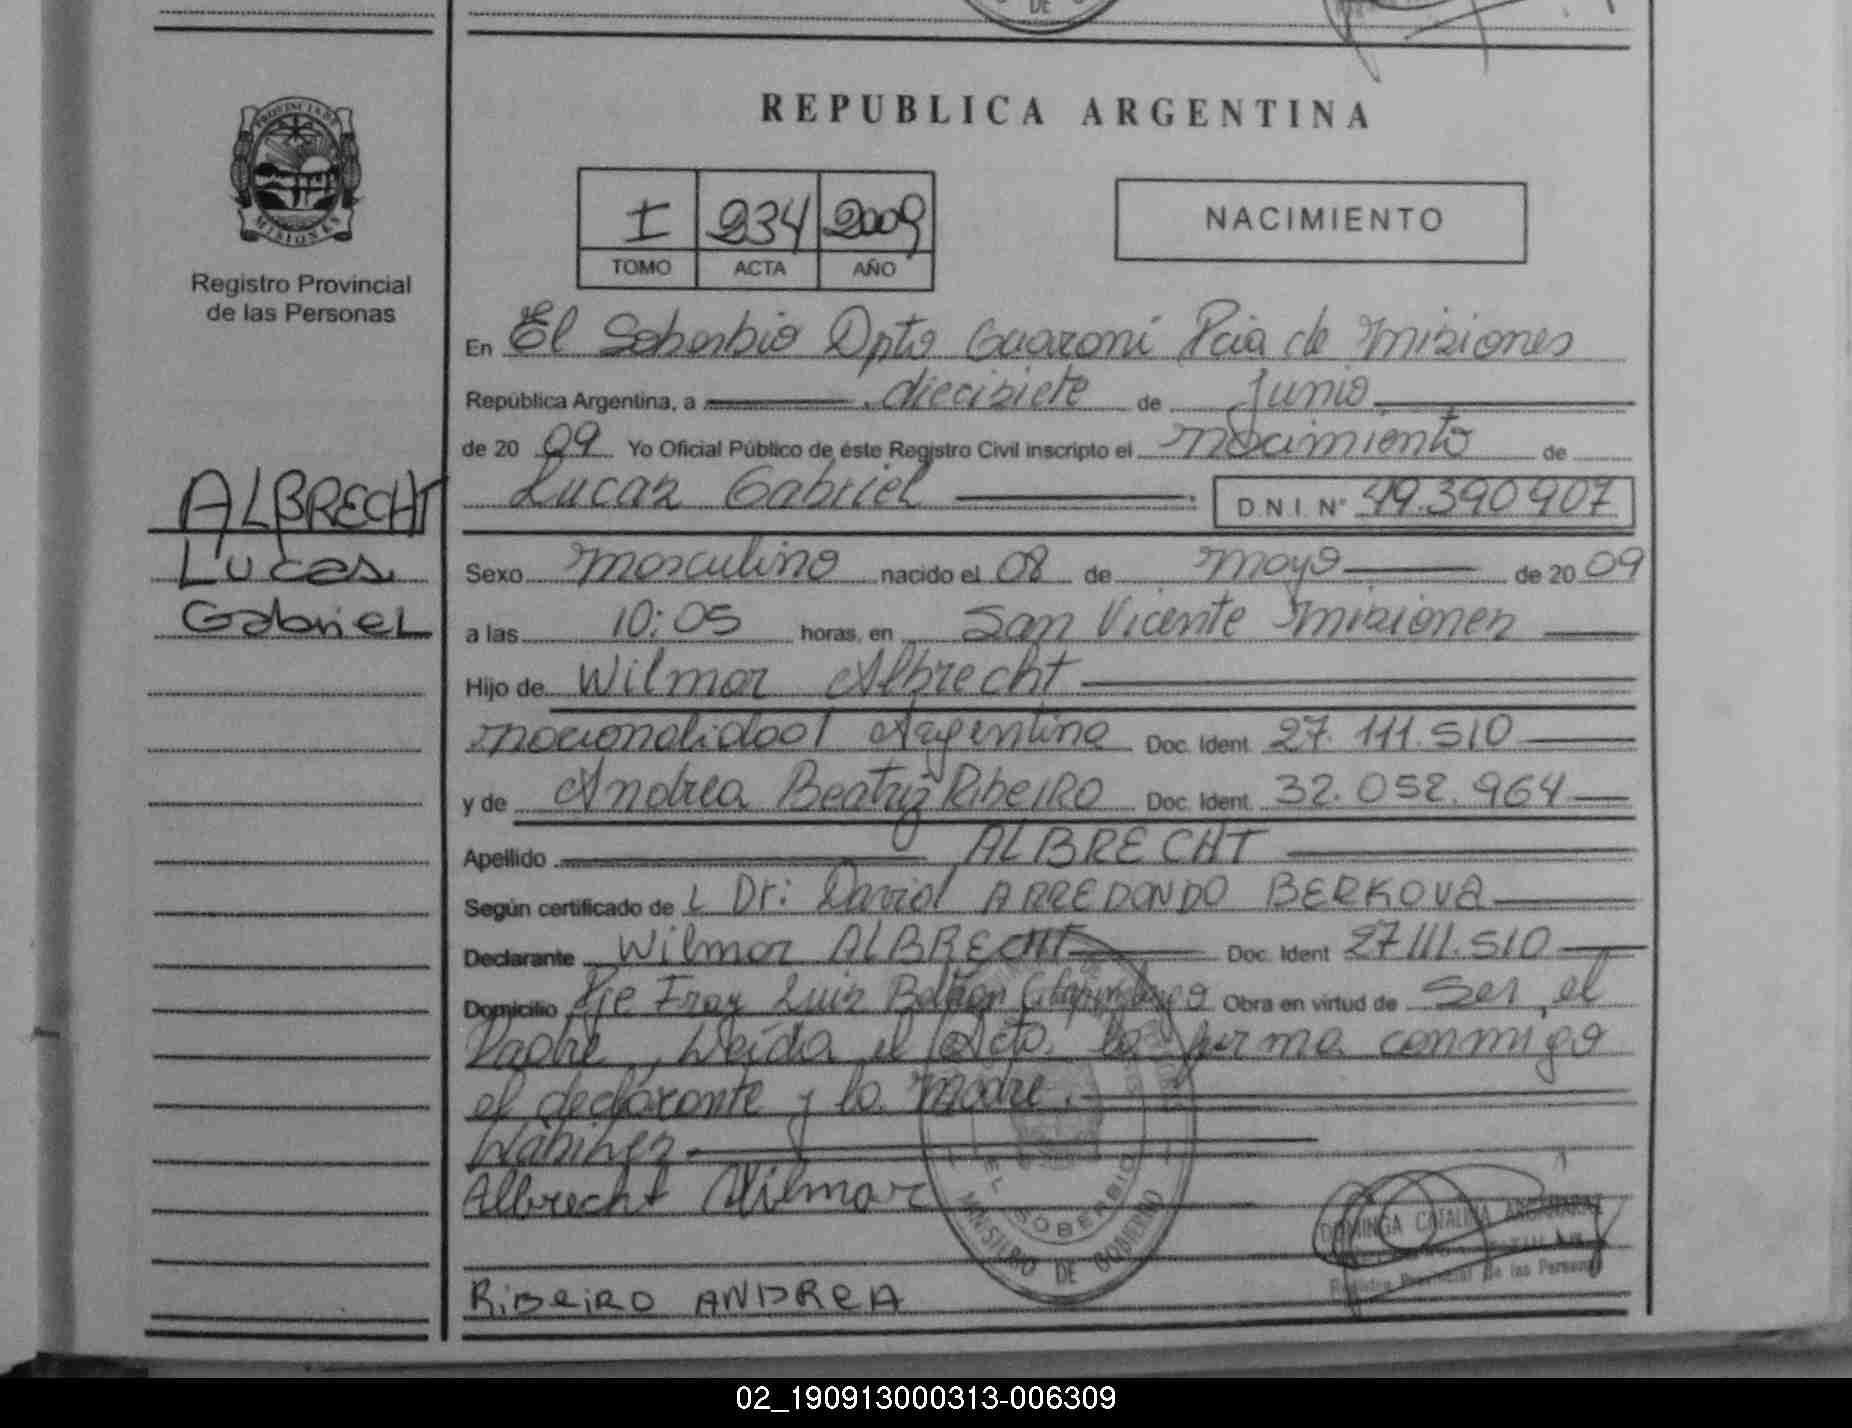 REPUBLICA ARGENTINA
PROVINCIA DE
MISIONES
Registro Provincial
de las Personas
I 234 2009
TOMO ACTA AÑO
NACIMIENTO
En El Soberbio Dpto Guaraní Pcia de Misiones
República Argentina, a diecisiete de Junio
de 2009 Yo Oficial Público de éste Registro Civil inscripto el nacimiento de
Lucas Gabriel D.N.I. Nº 49.390907
ALBRECHT
Lucas
Gabriel
Sexo masculino nacido el 08 de mayo de 2009
a las 10:05 horas, en San Vicente Misiones
Hijo de Wilmar Albrecht
nacionalidad Argentina Doc. Ident. 27.111.510
y de Andrea Beatriz Ribeiro Doc. Ident. 32.052.964
Apellido ALBRECHT
Según certificado de L Dr: David ARREDONDO BERKOVA
Declarante Wilmar ALBRECHT Doc. Ident 27111.510
Domicilio Pje Fray Luis Beltran Obra en virtud de Ser el
Padre, Leída el Acta, la firma conmigo
el declarante y la madre.
Albrecht Wilmar
EL SOBERBIO
MINISTERIO DE GOBIERNO
DOMINGA CATALINA
Registro Provincial de las Personas
RiBeiRO ANDReA
02_190913000313-006309